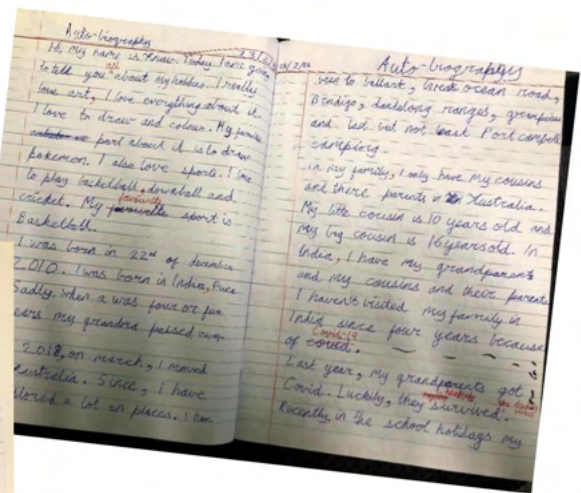 Auto-biography
Hi, my name is Today I am going
to tell you all about my hobbies. I really
love art, I love everything about it.
I love to draw and colour. My favourite
part about it is to draw
pokemon. I also love sports. I love
to play basketball, downball and
cricket. My favourite sport is
Basketball.
I was born in 22nd of december
2010. I was born in India, Pune
Sadly, when a was four or five
ears my grandma passed away.
2018, on march, I moved
Australia. Since, I have
lored a lot on places. I have
Auto-biography
been to ballart, Great ocean road,
Bendigo, dandelong ranges, grampians
and last but not least Port campbell
camping.
In my family, I only have my cousins
and there parents in Australia.
My little cousin is 10 years old and
my big cousin is 16 years old. In
India, I have my grandparents
and my cousins and their parents
I haven't visited my family in
India since four years because
of Covid-19
Last year, my grandparents got
Covid. Luckily, they survived.
Recently, in the school holidays my